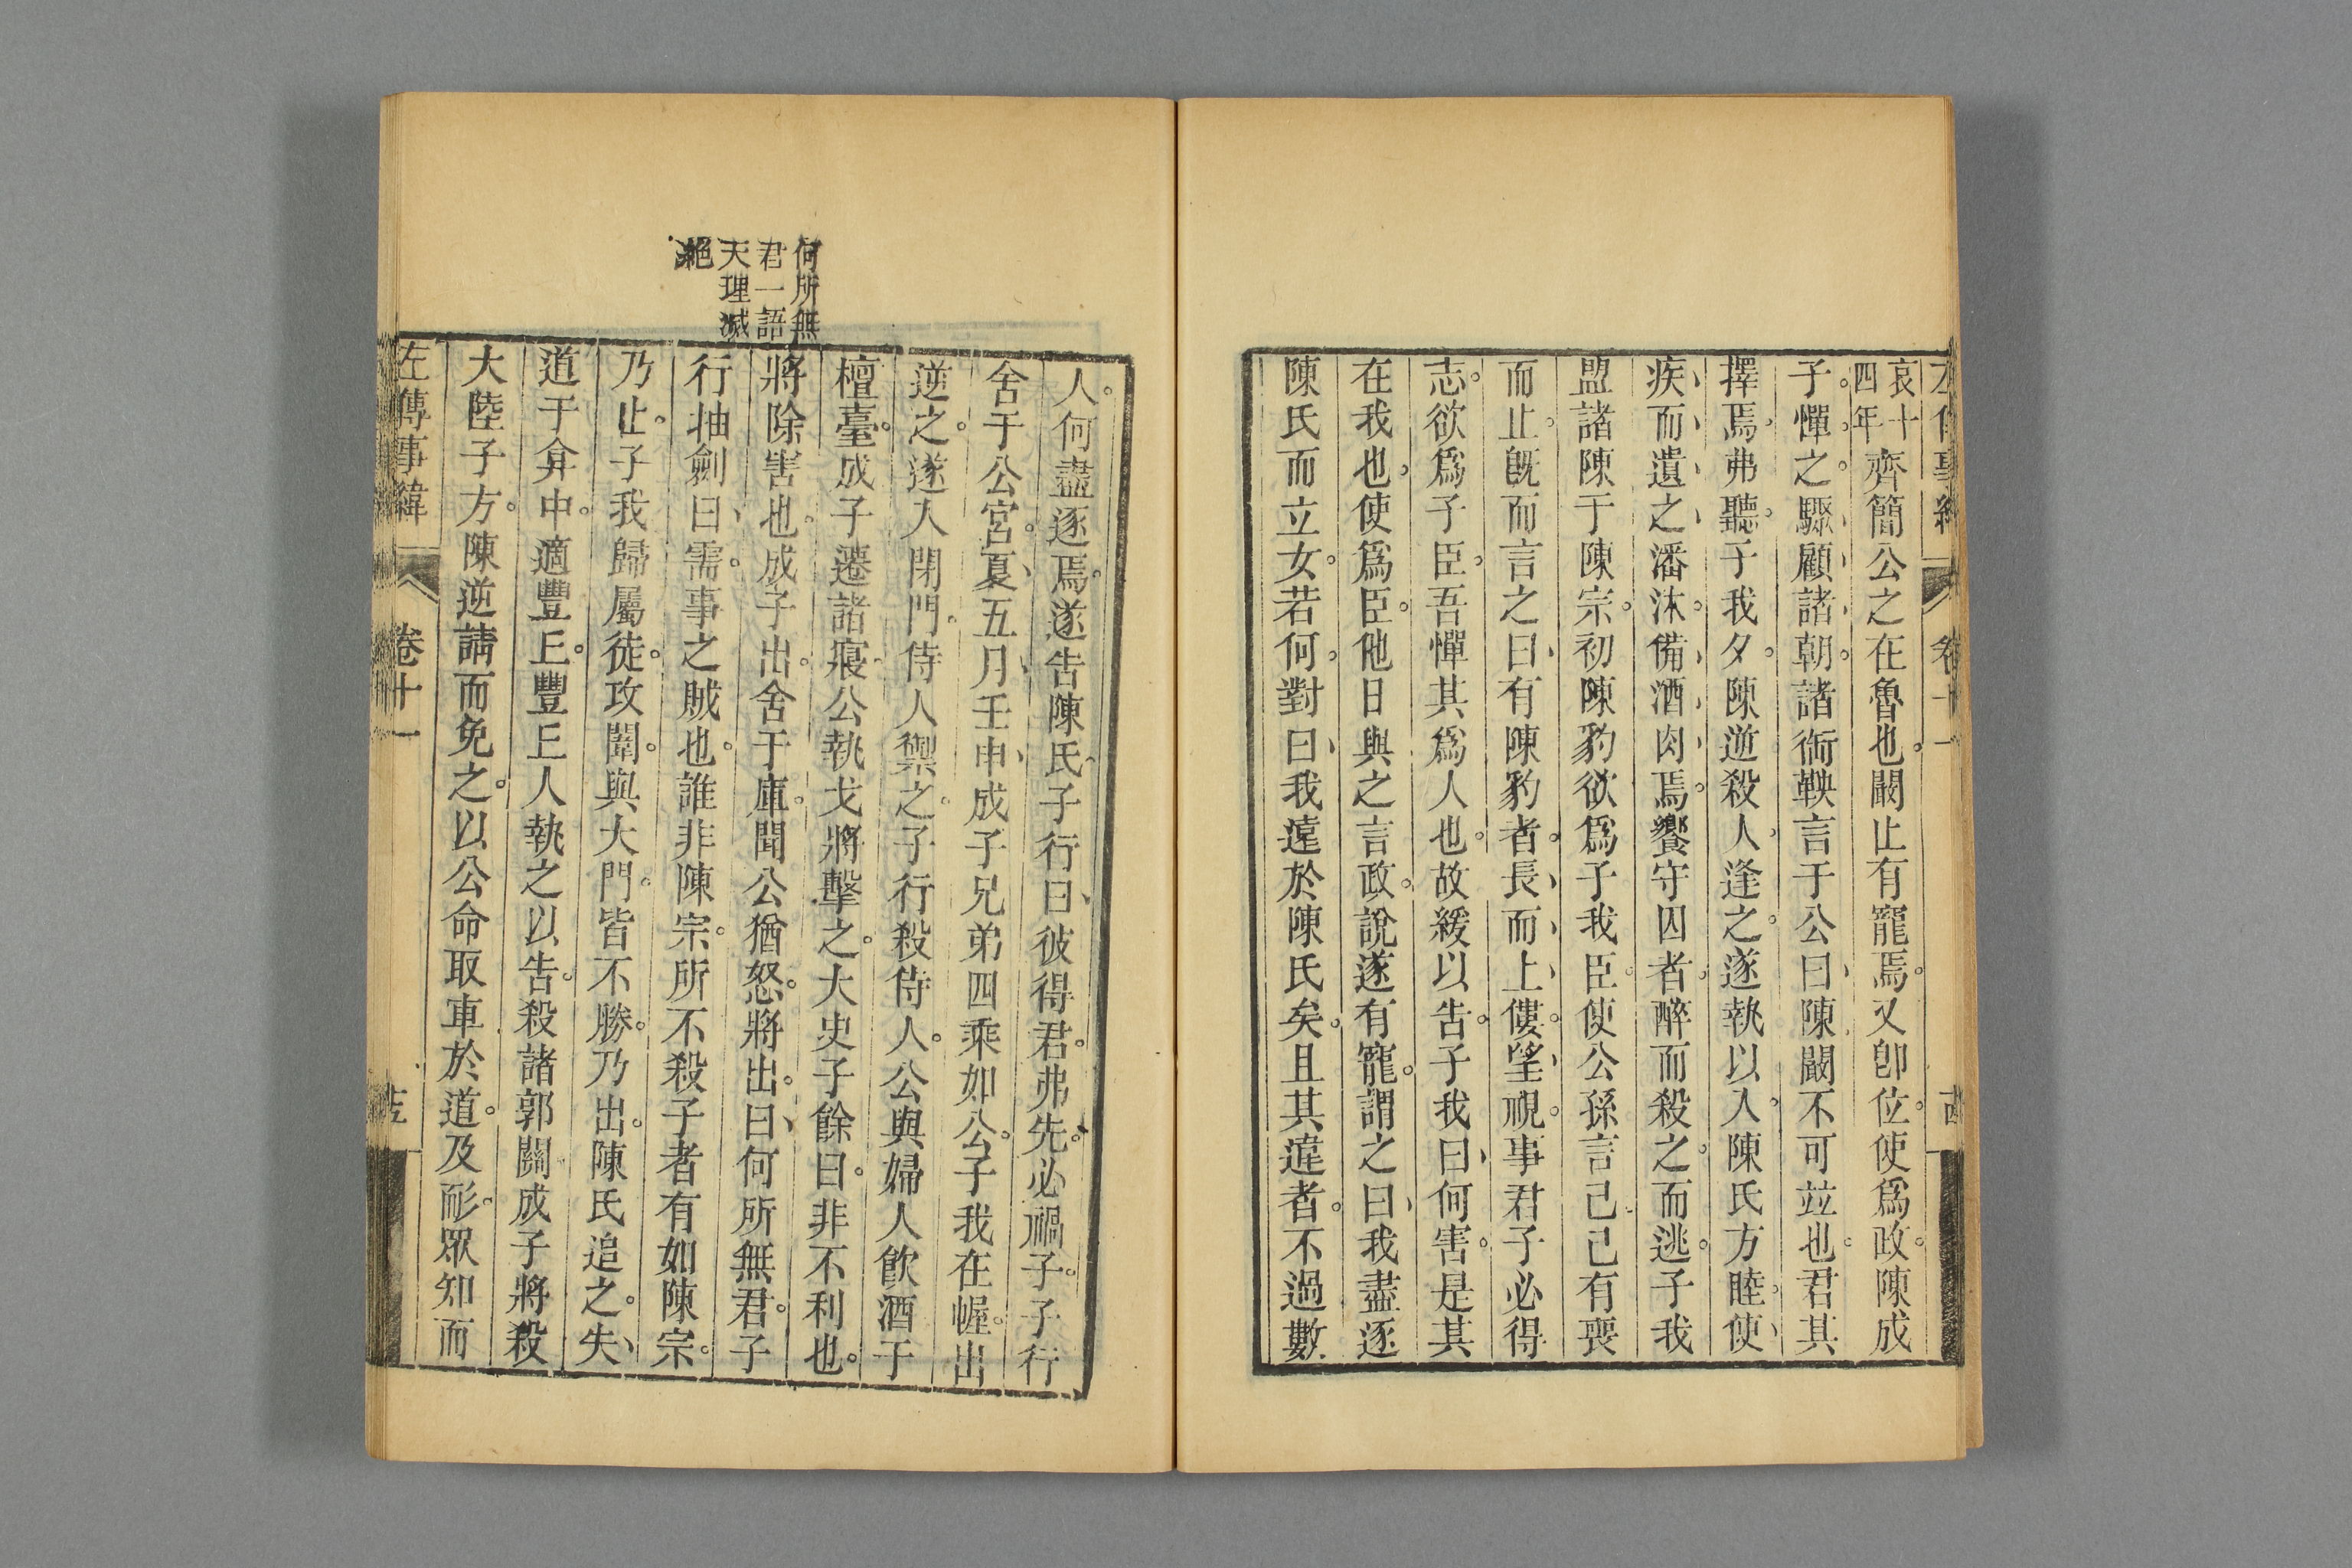 哀十
四年
齊簡公之在魯也闞止有寵焉又卽位使爲政陳成
子憚之驟顧諸朝諸御鞅言于公曰陳闞不可竝也君其
擇焉弗聽子我夕陳逆殺人逢之遂執以入陳氏方睦使
疾而遺之潘沐備酒肉焉饗守囚者醉而殺之而逃子我
盟諸陳于陳宗初陳豹欲爲子我臣使公孫言己己有喪
而止旣而言之曰有陳豹者長而上僂望視事君子必得
志欲爲子臣吾憚其爲人也故緩以告子我曰何害是其
在我也使爲臣他日與之言政說遂有寵謂之曰我盡逐
陳氏而立女若何對曰我遠於陳氏矣且其違者不過數
人何盡逐焉遂告陳氏子行曰彼得君弗先必禍子子行
舍于公宮夏五月壬申成子兄弟四乘如公子我在幄出
逆之遂入閉門侍人禦之子行殺侍人公與婦人飮酒于
檀臺成子遷諸寢公執戈將擊之大史子餘曰非不利也
將除害也成子出舍于庫聞公猶怒將出曰何所無君子
行抽劍曰需事之賊也誰非陳宗所不殺子者有如陳宗
乃止子我歸屬徒攻闈與大門皆不勝乃出陳氏追之失
道于弇中適豐丘豐丘人執之以告殺諸郭關成子將殺
大陸子方陳逆請而免之以公命取車於道及耏眾知而
何所無
君一語
天理滅
絕
左傳事緯
卷十一